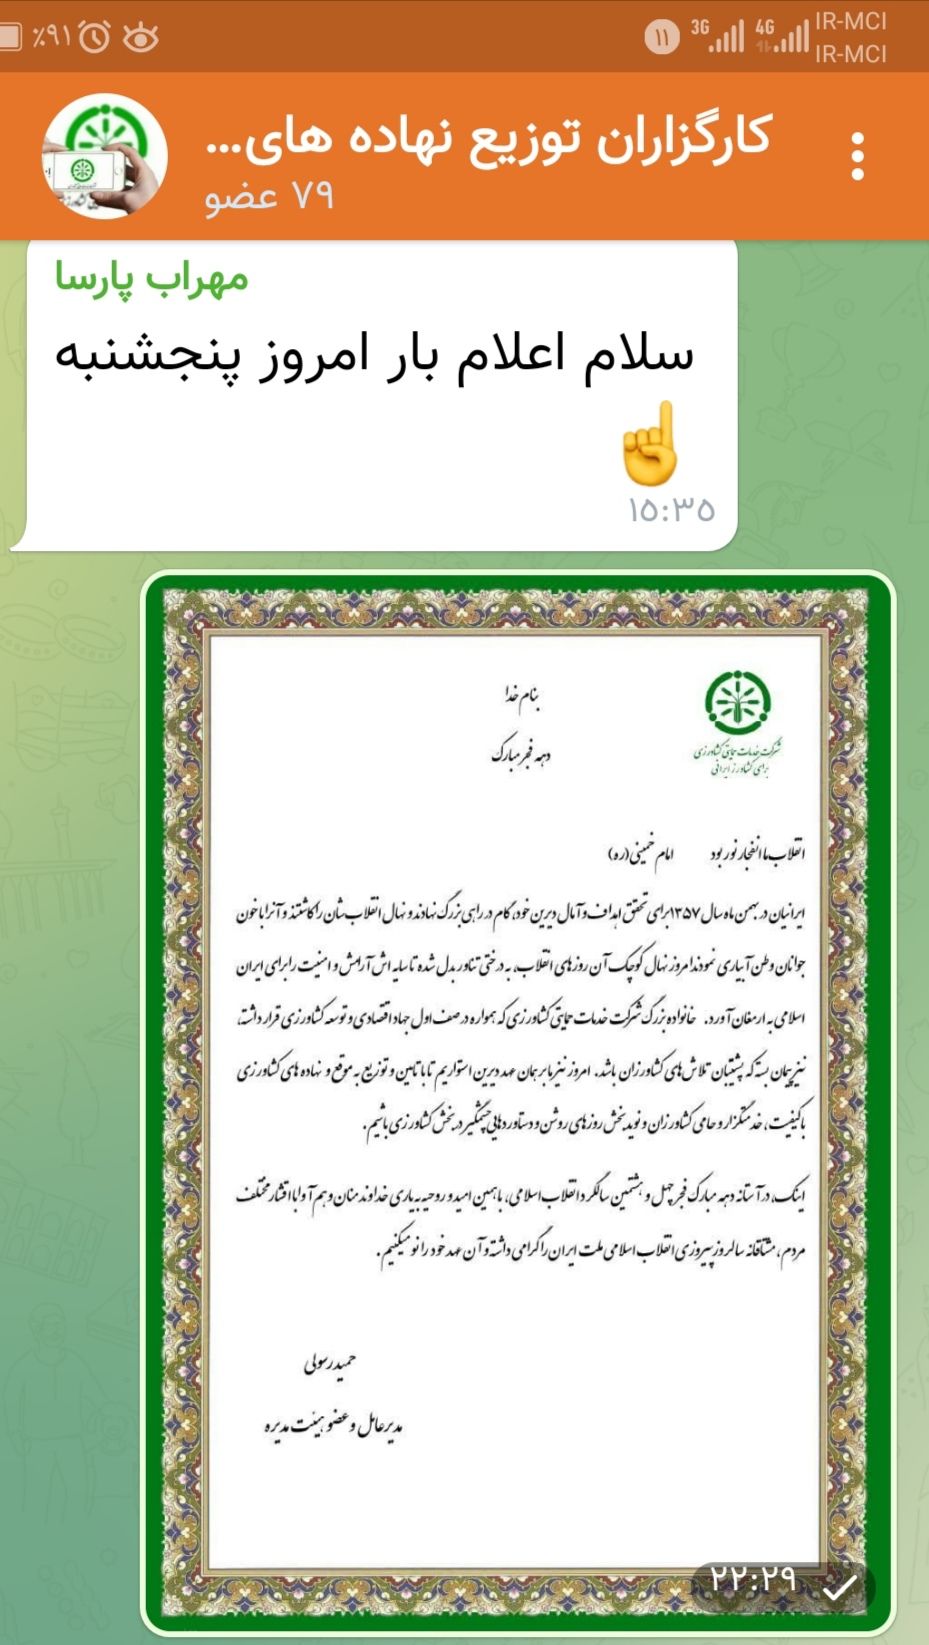 ٪۹۱
۱۱
3G
4G
IR-MCI
IR-MCI
کارگزاران توزیع نهاده های...
۷۹ عضو
مهراب پارسا
سلام اعلام بار امروز پنجشنبه
☝
۱۵:۳۵
بنام خدا
دهه فجر مبارک
شرکت خدمات حمایتی کشاورزی
برای کشاورز ایرانی
انقلاب ما انفجار نور بود امام خمینی (ره)
ایرانیان در بهمن ماه سال ۱۳۵۷ برای تحقق اهداف و آمال دیرین خود، گام در راهی بزرگ نهادند و نهال انقلاب شان را کاشتند و آنرا با خون
جوانان وطن آبیاری نمودند امروز نهال کوچک آن روزهای انقلاب، به درختی تناور بدل شده تا سایه اش آرامش و امنیت را برای ایران
اسلامی به ارمغان آورد. خانواده بزرگ شرکت خدمات حمایتی کشاورزی که همواره در صف اول جهاد اقتصادی و توسعه کشاورزی قرار داشته،
نیز پیمان بسته که پشتیبان تلاش های کشاورزان باشد. امروز نیز ما بر همان عهد دیرین استواریم تا با تامین و توزیع به موقع و نهاده های کشاورزی
با کیفیت، خدمتگزار و حامی کشاورزان و نوید بخش روزهای روشن و دستاوردهایی چشمگیر در بخش کشاورزی باشیم.
اینک، در آستانه دهه مبارک فجر چهل و هشتمین سالگرد انقلاب اسلامی، با همین امید و روحیه به یاری خداوند منان و هم آوا با اقشار مختلف
مردم، مشتاقانه سالروز پیروزی انقلاب اسلامی ملت ایران را گرامی داشته و آن عهد خود را نو میکنیم.
حمید رسولی
مدیر عامل و عضو هیئت مدیره
۲۲:۲۹